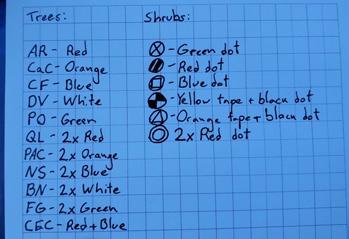 Trees:
AR - Red
CaC - Orange
CF - Blue
DV - White
PO - Green
QL - 2x Red
PAC - 2x Orange
NS - 2x Blue
BN - 2x White
FG - 2x Green
CEC - Red + Blue
Shrubs:
- Green dot
- Red dot
- Blue dot
- Yellow tape + black dot
- Orange tape + black dot
2x Red dot